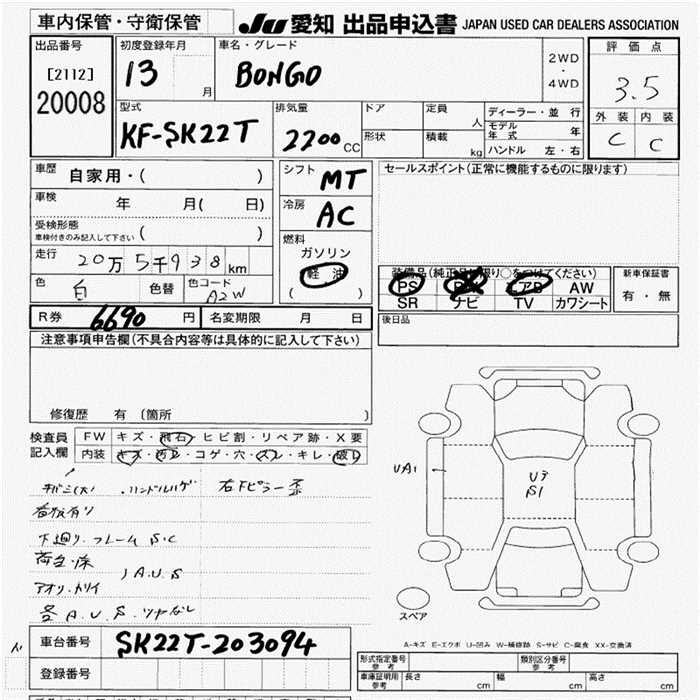 車内保管・守衛保管 JU 愛知 出品申込書 JAPAN USED CAR DEALERS ASSOCIATION
出品番号 初度登録年月 車名・グレード 2WD・4WD 評価点
[2112] 13 月 BONGO 3.5
20008 外装 内装
型式 排気量 ドア 定員 人 ディーラー・並行
KF-SK22T 2200 CC 形状 積載 kg モデル年式 年
ハンドル 左・右 C C
車歴 自家用・( ) シフト MT セールスポイント(正常に機能するものに限ります)
車検 年 月( 日) 冷房 AC
受検形態
車検付きのみ記入して下さい ( )
燃料
ガソリン
軽油
( )
走行 20万5千938km
色 白 色替 色コード A2W
装備品(純正品に限り○をつけてください) 新車保証書
PS PW エアB AW 有・無
SR ナビ TV カワシート
R券 6690 円 名変期限 月 日 後日品
注意事項申告欄(不具合内容等は具体的に記入して下さい)
修復歴 有(箇所 )
検査員記入欄 FW キズ・飛石・ヒビ割・リペア跡・X要
内装 キズ・汚レ・コゲ・穴・スレ・キレ・破レ
ハンドルハゲ 右下ピラー歪
看板有り
下廻り、フレームS.C
荷台床
アオリ、トリイ A.U.S
各A.U.S.ツヤなし
UA1
S1
スペア
A-キズ E-エクボ U-凹み W-補修跡 S-サビ C-腐食 XX-交換済
車台番号 SK22T-203094
登録番号
形式指定番号 参考 類別区分番号 参考
車庫証明用 参考 長さ cm 幅 cm 高さ cm